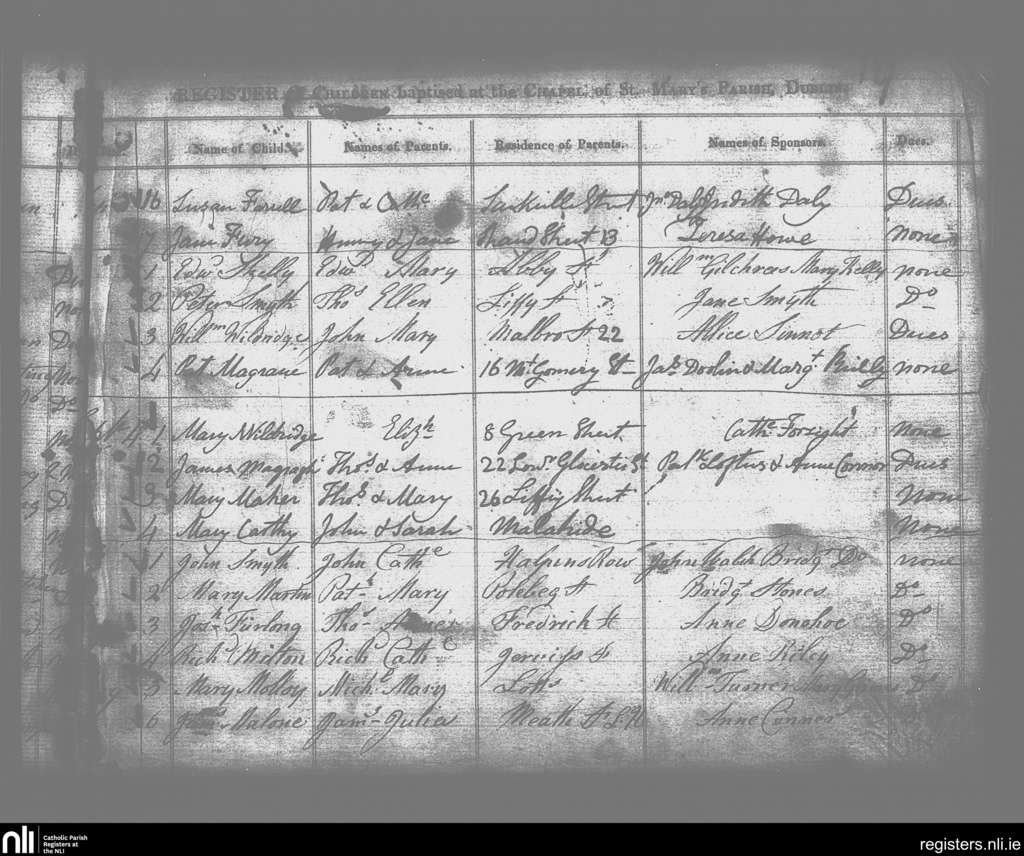 REGISTER of CHILDREN baptised at the CHAPEL of ST. MARY'S PARISH, DUBLIN.
Name of Child. Names of Parents. Residence of Parents. Names of Sponsors. Dues.
16 Susan Farrell Pat & Cathe Street Jno Daly Judith Daly Dues
7 Jane Fury Henry & Jane Street 13 Teresa Howe none
1 Edwd Skelly Edwd Mary Abby St Willm Gilchres Mary Kelly none
2 Peter Smyth Thos Ellen Liffy St Jane Smyth Do
3 Willm Wildridge John Mary Malbro St 22 Allice Sinnot Dues
4 Pat Magraue Pat & Anne 16 Mtgomery St Jas Doolin & Margt Reilly none
1 Mary Wildridge Elizh 8 Green Street Cathe Forsight None
2 James Thos & Anne 22 Lowr Glocester St Patk Loftus & Anne Connor Dues
3 Mary Maher Thos & Mary 26 Liffy Street None
4 Mary Carthy John & Sarah Malahide None
1 John Smyth John Cathe Halpins Row John Walsh Bridgt Do none
2 Mary Martin Patk Mary Poolbeg St Bridgt Stones Do
3 Josh Furlong Thos Fredrick St Anne Donohoe Do
4 Richd Milton Richd Cathe Jerviss St Anne Riley Do
5 Mary Molloy Michl Mary Lotts Willm Turner Mary Do
6 Malone Jams Julia Meath St Anne Conner
nli Catholic Parish
Registers at
the NLI
registers.nli.ie